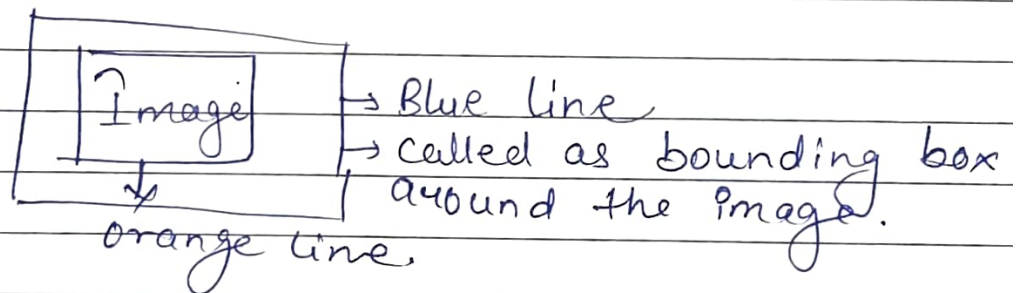 Image
→ Blue line
→ called as bounding box
around the image.
orange line.